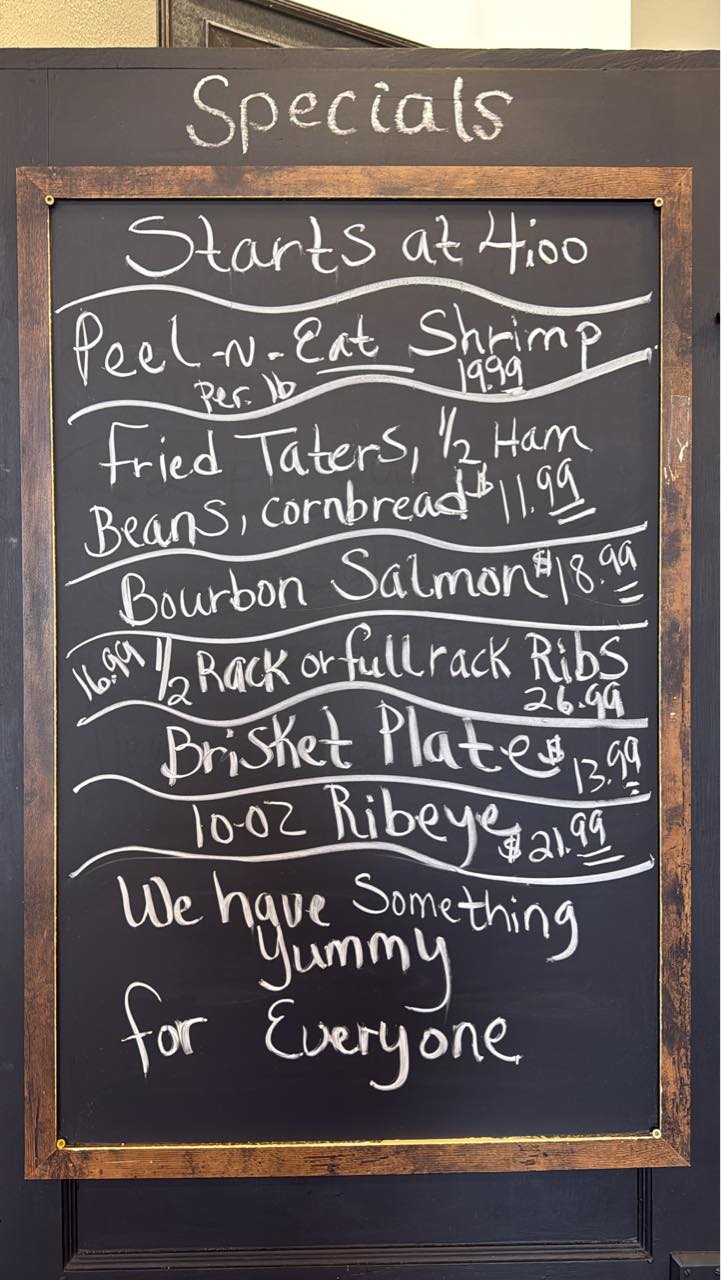 Specials
Starts at 4:00
Peel-N-Eat Shrimp
per. lb 19.99
Fried Taters, 1/2 Ham
Beans, cornbread $11.99
Bourbon Salmon $18.99
16.99 1/2 Rack or full rack Ribs
26.99
Brisket Plate $13.99
10-oz Ribeye $21.99
We have Something
Yummy
for Everyone